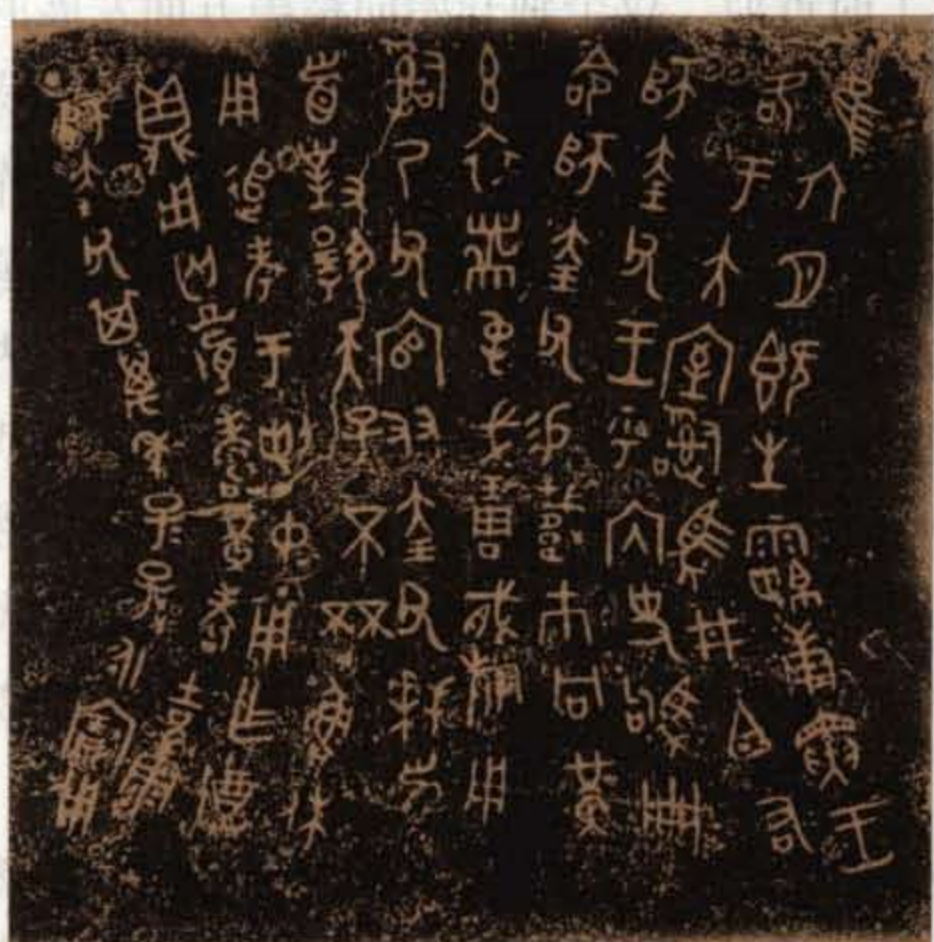 隹六月既生霸庚寅王
各于大室𤔲馬井白右
師𡘇父王乎內史駒冊
命師𡘇父易䊷巿冋黃
玄衣黹屯戈琱㦰旂用
𤔲乃父官友𡘇父拜𩒨
首對揚天子不㔻魯休
用追考于剌中用乍尊
鼎用匄眉壽黃耇吉康
師𡘇父其萬年子子孫孫永寶用